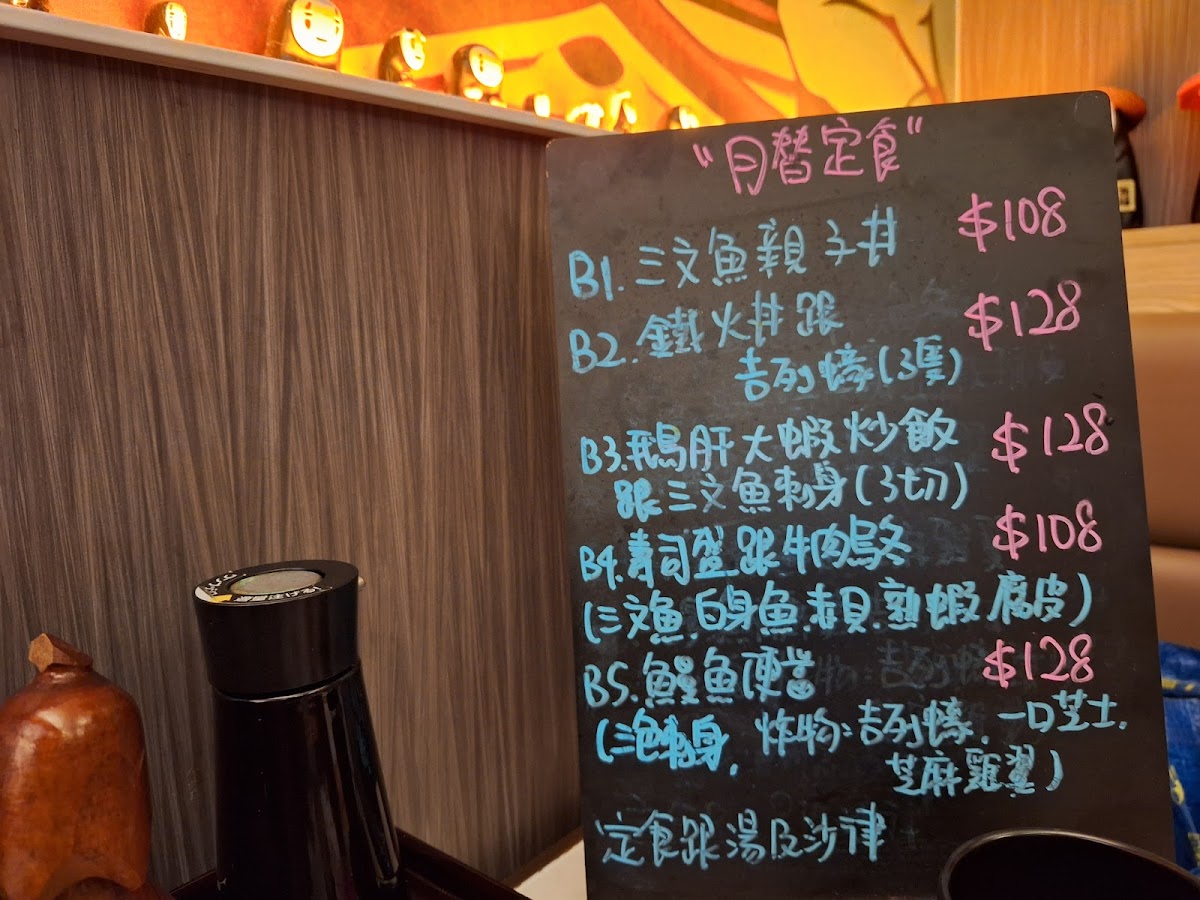 "月替定食"
B1. 三文魚親子丼 $108
B2. 鐵火丼跟 $128
吉列蠔(3隻)
B3. 鵝肝大蝦炒飯 $128
跟三文魚刺身(3切)
B4. 壽司盛跟牛肉烏冬 $108
(三文魚.白身魚.赤貝.熟蝦.腐皮)
B5. 鰻魚便當 $128
(三色刺身, 炸物:吉列蠔, 一口芝士,
芝麻雞翼)
定食跟湯及沙律